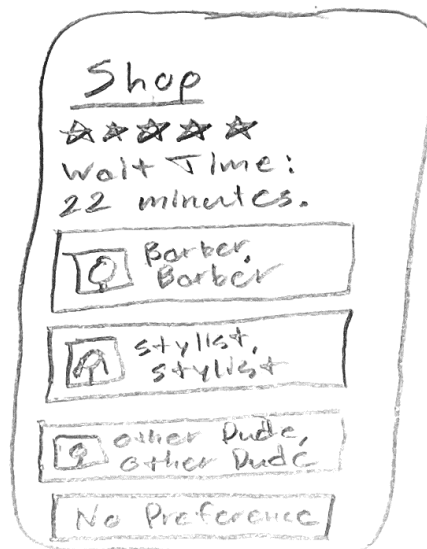 Shop
Wait Time:
22 minutes.
Barber,
Barber
Stylist,
Stylist
Other Dude,
Other Dude
No Preference